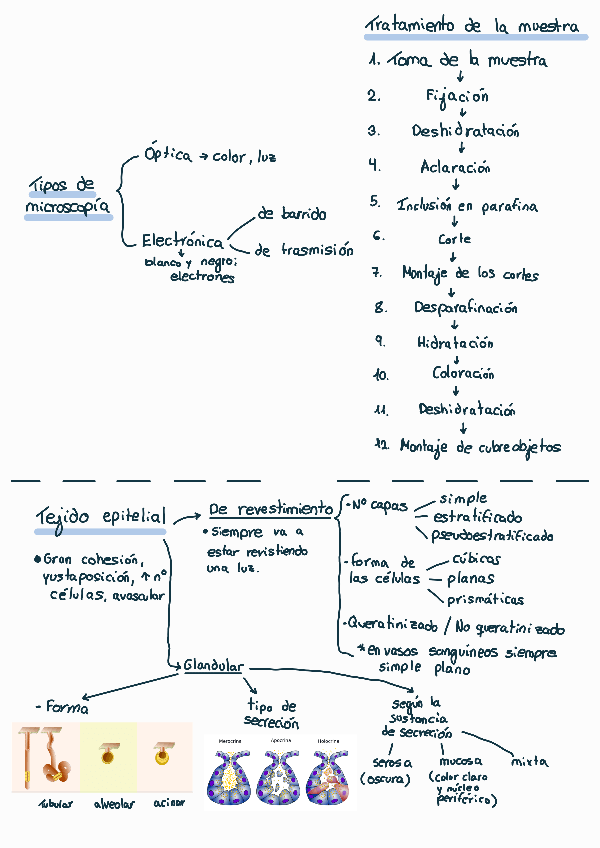 Tratamiento de la muestra
1. Toma de la muestra
2. Fijación
3. Deshidratación
4. Aclaración
5. Inclusión en parafina
6. Corte
7. Montaje de los cortes
8. Desparafinación
9. Hidratación
10. Coloración
11. Deshidratación
12. Montaje de cubreobjetos
Tipos de
microscopía
Óptica → color, luz
Electrónica
blanco y negro:
electrones
de barrido
de trasmisión
Tejido epitelial
• Gran cohesión,
yustaposición, ↑ nº
células, avascular
De revestimiento
• Siempre va a
estar revistiendo
una luz.
- Nº capas
simple
estratificado
pseudoestratificado
- forma de
las células
cúbicas
planas
prismáticas
- Queratinizado / No queratinizado
* en vasos sanguíneos siempre
simple plano
Glandular
- Forma
tubular
alveolar
acinar
tipo de
secreción
Merocrina
Apocrina
Holocrina
según la
sustancia
de secreción
serosa
(oscura)
mucosa
(color claro
y núcleo
periférico)
mixta